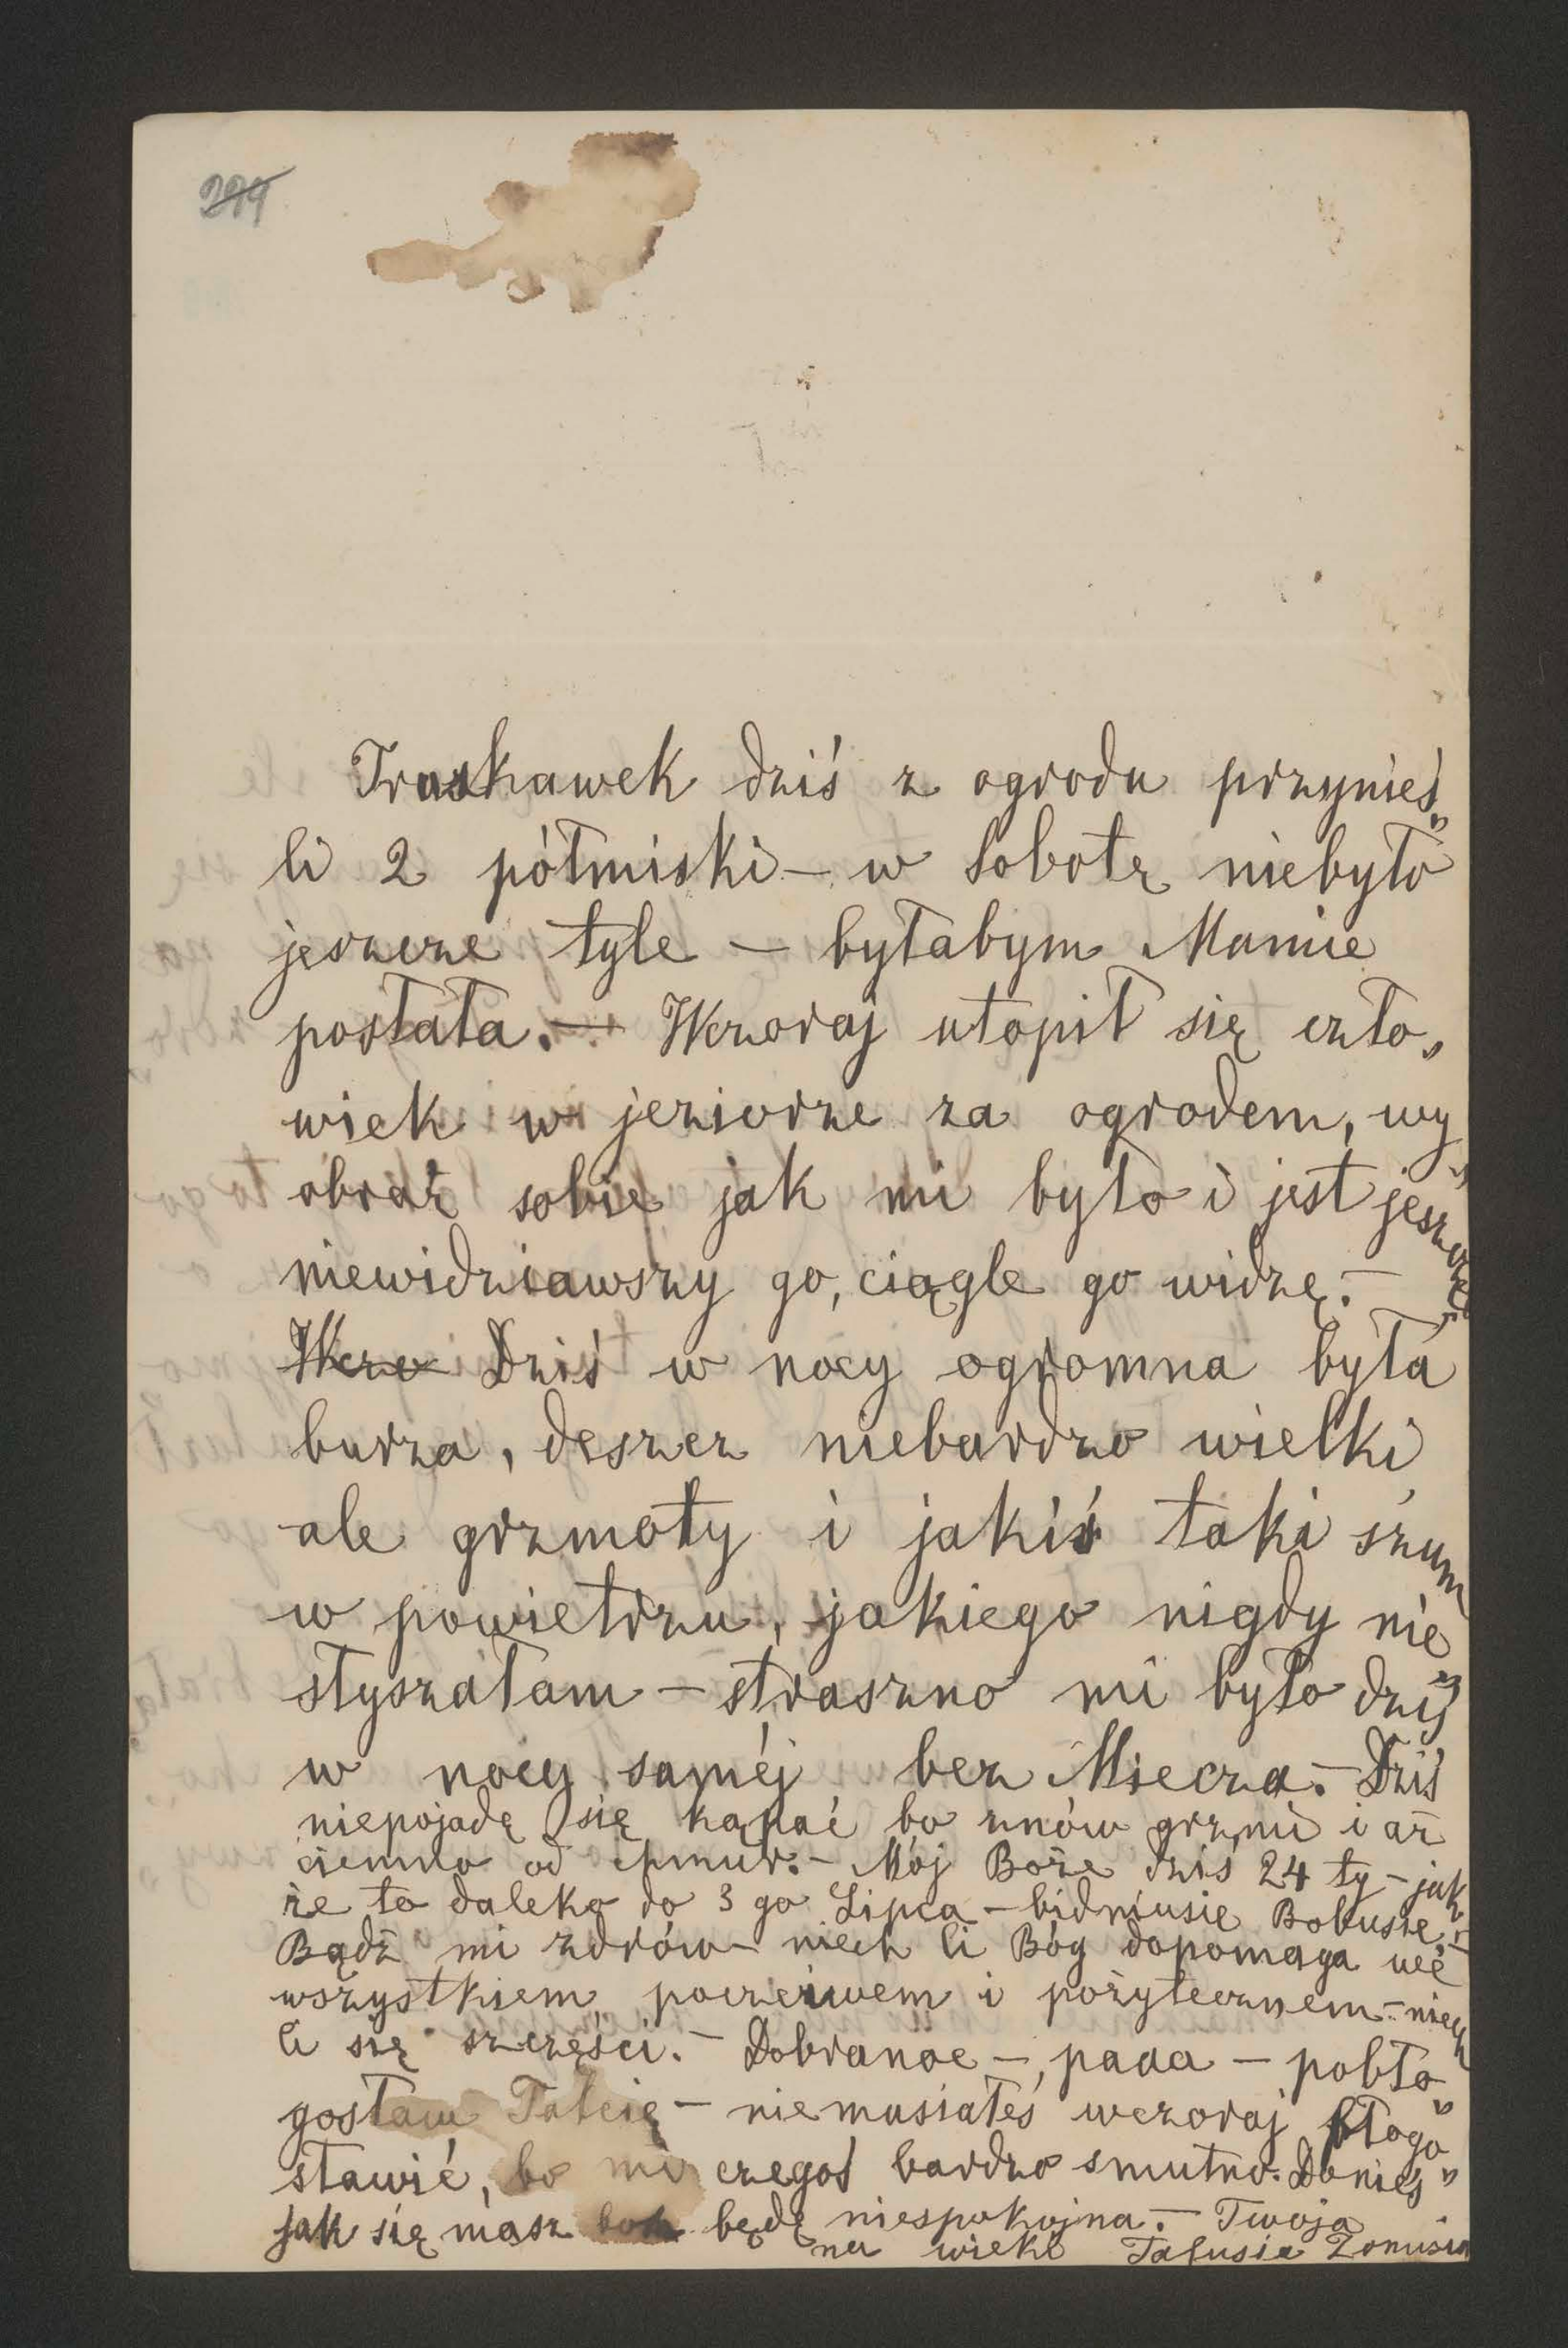 299
Truskawek dziś z ogrodu przynieś„
li 2 półmiski – w sobotę niebyło
jeszcze tyle – byłabym Mamie
posłała. – Wczoraj utopił się czło„
wiek w jeziorze za ogrodem, wy„
obraź sobie jak mi było i jest jeszcze,
niewidziawszy go, ciągle go widzę. –
Wczo Dziś w nocy ogromna była
burza, deszcz niebardzo wielki
ale grzmoty i jakiś taki szum
w powietrzu, jakiego nigdy nie„
słyszałam – straszno mi było dziś
w nocy saméj bez Miecza. – Dziś
niepojadę się kąpać bo znów grzmi i aż
ciemno od chmur. – Mój Boże dziś 24 ty – jak„
że to daleko do 3 go Lipca – bidniusie Bobusie, –
Bądź mi zdrów – niech Ci Bóg dopomaga we
wszystkiem poczciwem i pożytecznem – niech
Ci się szczęści. – Dobranoc –, paaa – pobło„
gosław Tatcię – niemusiałeś wczoraj błogo„
sławić, bo mi czegoś bardzo smutno. Donieś„
jak się masz boh będę niespokojna. – Twoja
na wieki Tatusia Żonusia